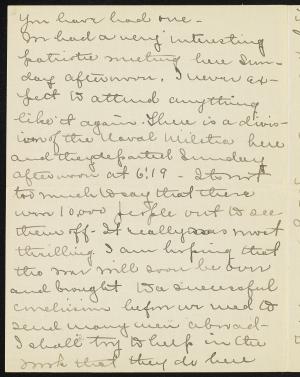 you have had one -
We had a very interesting
patriotic meeting here Sun-
day afternoon. I never ex-
pect to attend anything
like it again. There is a divis-
ion of the Naval Militia here
and they departed Sunday
afternoon at 6:19 - It is not
too much to say that there
were 10,000 people out to see
them off - It really was most
thrilling. I am hoping that
this war will soon be over
and brought to a successful
conclusion before we need to
send many men abroad -
I shall try to help in the
work that they do here